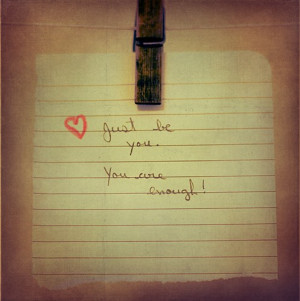 Just be
you.
You are
enough!